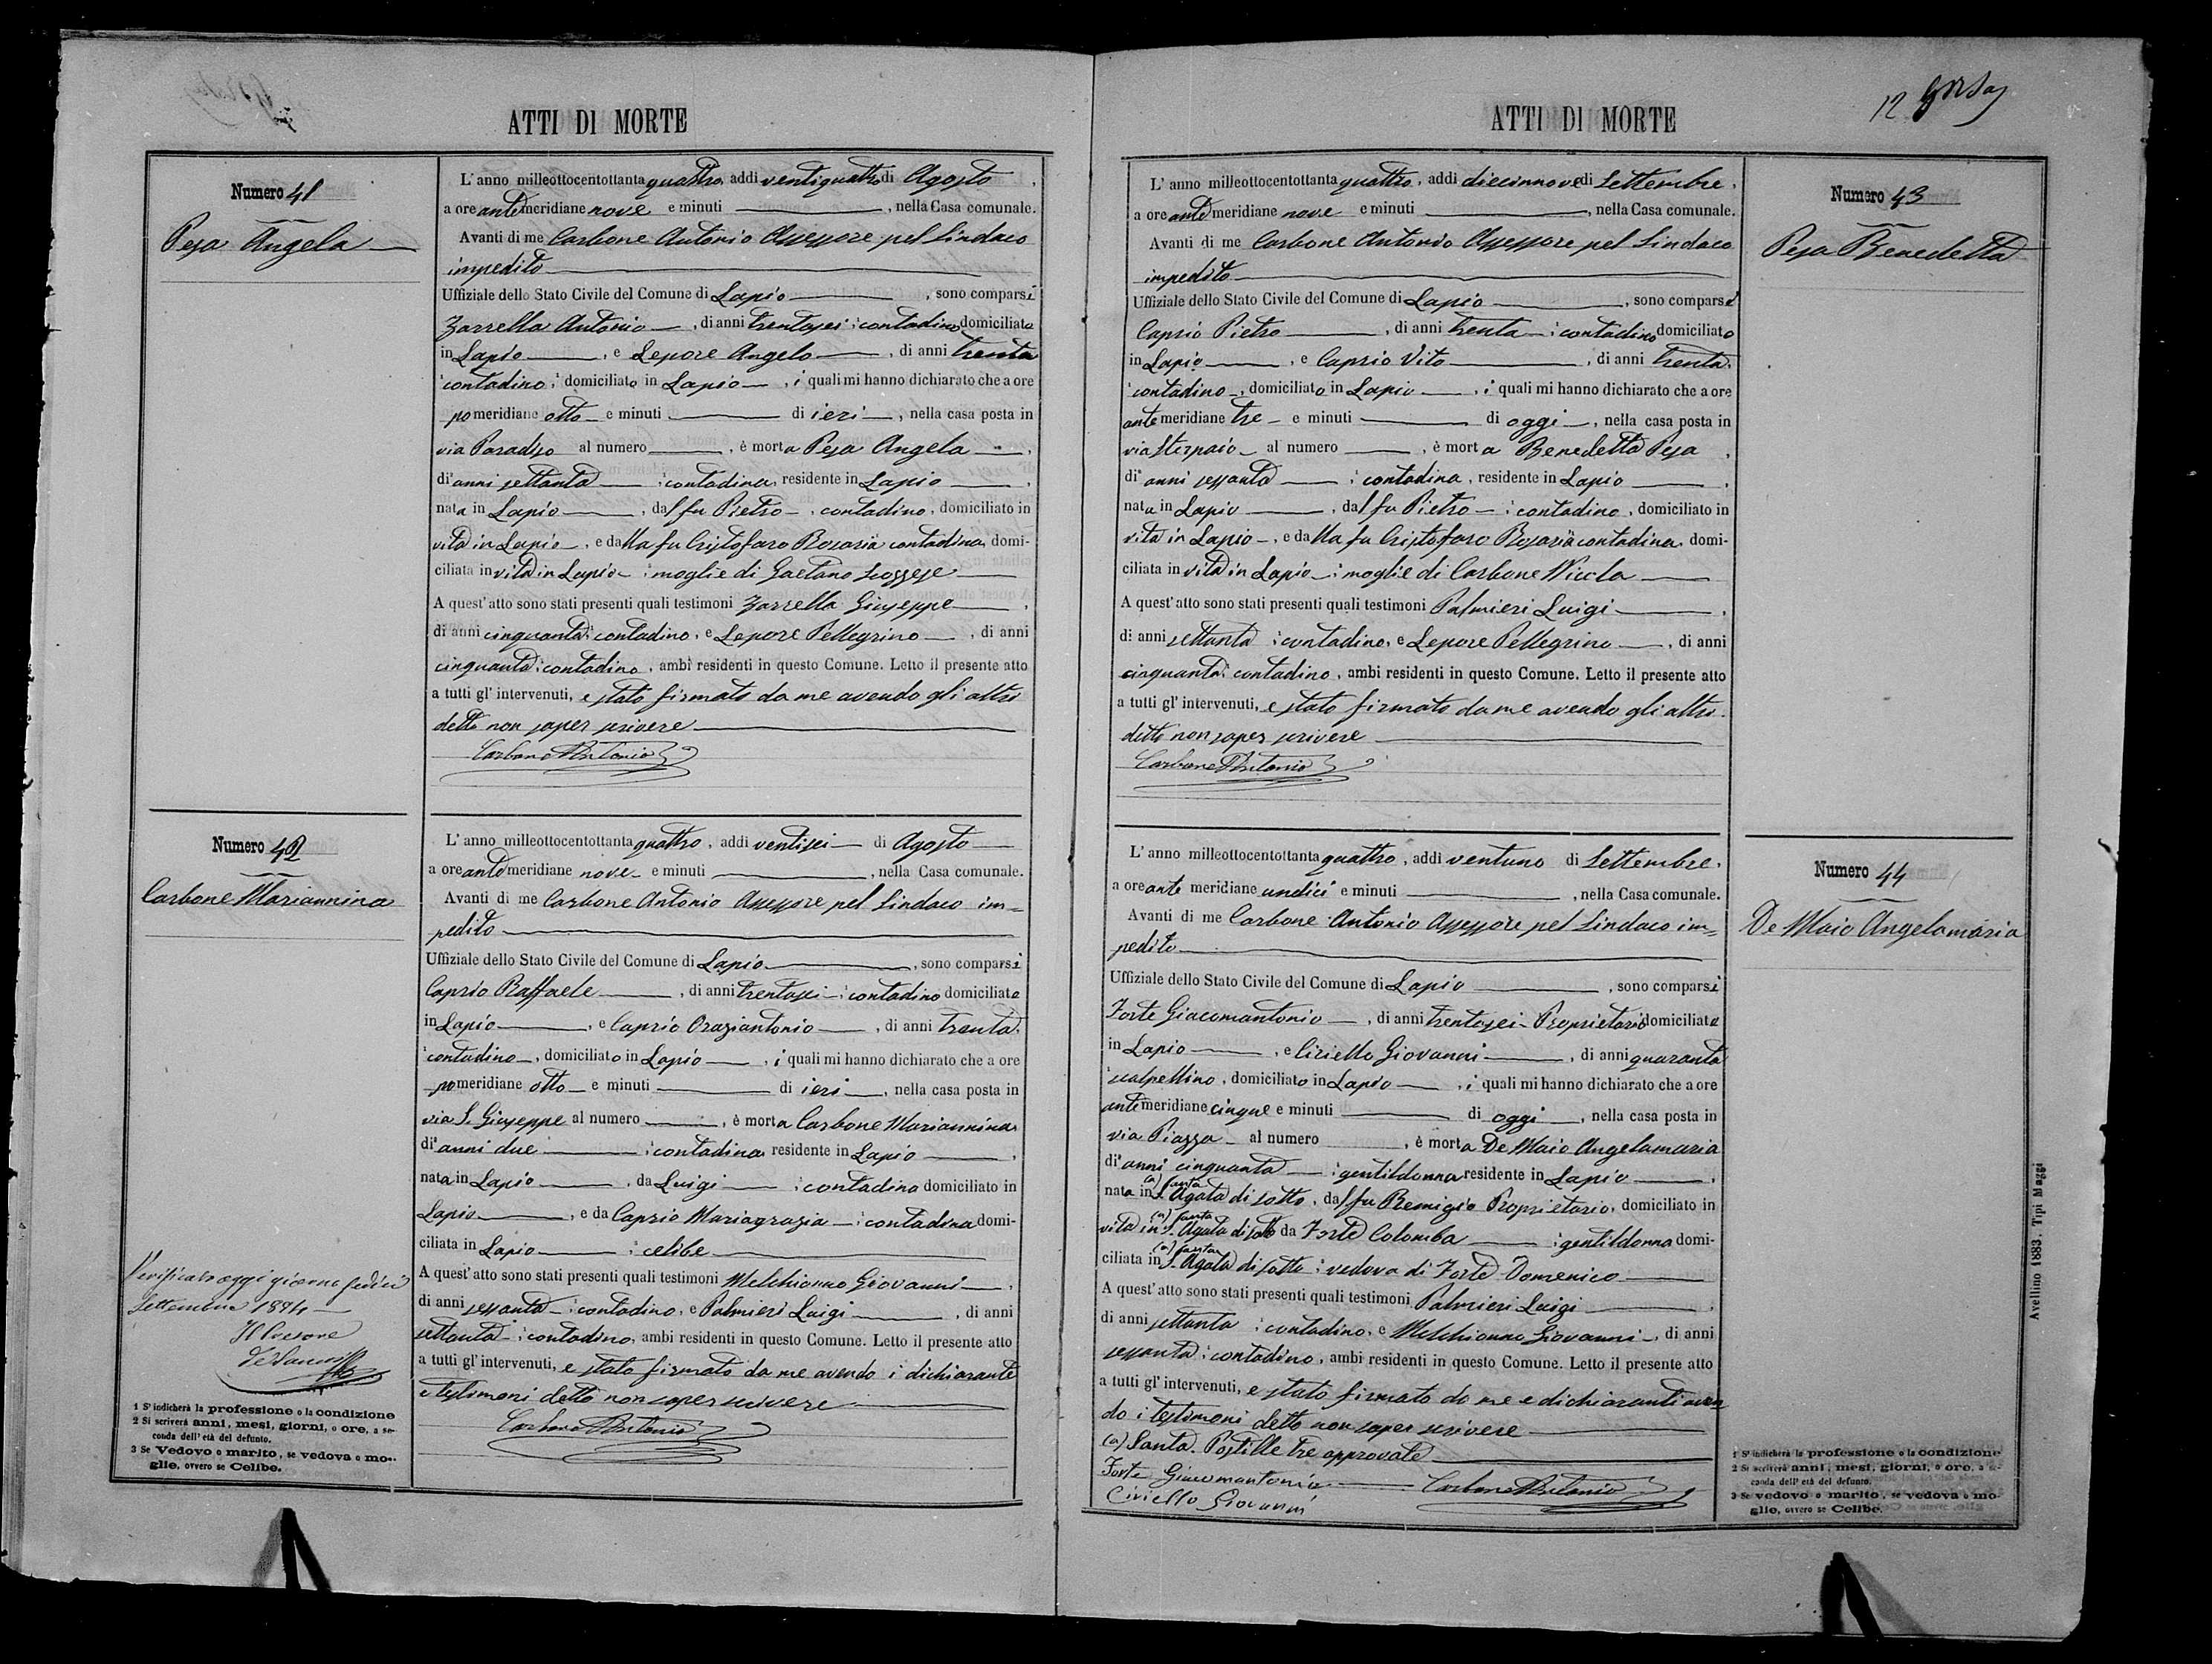 ATTI DI MORTE
Numero 41
Pesa Angela
L'anno milleottocentottanta quattro, addi ventiquattro di Agosto,
a ore antemeridiane nove e minuti, nella Casa comunale.
Avanti di me Carbone Antonio Assessore pel Sindaco
impedito
Uffiziale dello Stato Civile del Comune di Lapio, sono comparsi
Zarrella Antonio, di anni trentasei contadino domiciliato
in Lapio, e Lepore Angelo, di anni trenta
contadino, domiciliato in Lapio, i quali mi hanno dichiarato che a ore
pomeridiane otto e minuti di ieri, nella casa posta in
via Paradiso al numero, è morta Pesa Angela,
di anni settanta contadina, residente in Lapio,
nata in Lapio, dal fu Pietro, contadino, domiciliato in
vita in Lapio, e dalla fu Cristofaro Rosaria contadina, domi-
ciliata in vita in Lapio moglie di Gaetano Scozzese
A quest'atto sono stati presenti quali testimoni Zarrella Giuseppe,
di anni cinquanta contadino, e Lepore Pellegrino, di anni
cinquanta contadino, ambi residenti in questo Comune. Letto il presente atto
a tutti gl'intervenuti, e stato firmato da me avendo gli altri
detto non saper scrivere
Carbone Antonio
Numero 42
Carbone Mariannina
L'anno milleottocentottanta quattro, addi ventisei di Agosto
a ore antemeridiane nove e minuti, nella Casa comunale.
Avanti di me Carbone Antonio Assessore pel Sindaco im=
pedito
Uffiziale dello Stato Civile del Comune di Lapio, sono comparsi
Caprio Raffaele, di anni trentasei contadino domiciliato
in Lapio, e Caprio Oraziantonio, di anni trenta,
contadino, domiciliato in Lapio, i quali mi hanno dichiarato che a ore
pomeridiane otto e minuti di ieri, nella casa posta in
via S. Giuseppe al numero, è morta Carbone Mariannina
di anni due contadina residente in Lapio,
nata in Lapio, da Luigi contadino domiciliato in
Lapio, e da Caprio Mariagrazia contadina domi-
ciliata in Lapio celibe
A quest'atto sono stati presenti quali testimoni Melchionno Giovanni,
di anni sessanta contadino, e Palmieri Luigi, di anni
settanta contadino, ambi residenti in questo Comune. Letto il presente atto
a tutti gl'intervenuti, e stato firmato da me avendo i dichiarante
e testimoni detto non saper scrivere
Carbone Antonio
Verificato oggi giorno sedici
Settembre 1884
Il Pretore
1 S'indicherà la professione o la condizione
2 Si scriverà anni, mesi, giorni, o ore, a se-
conda dell'età del defunto.
3 Se Vedovo o marito, se vedova o mo-
glie, ovvero se Celibe.
12
ATTI DI MORTE
L'anno milleottocentottanta quattro, addi diecinnove di Settembre,
a ore antemeridiane nove e minuti, nella Casa comunale.
Avanti di me Carbone Antonio Assessore pel Sindaco
impedito
Uffiziale dello Stato Civile del Comune di Lapio, sono comparsi
Caprio Pietro, di anni trenta contadino domiciliato
in Lapio, e Caprio Vito, di anni trenta,
contadino, domiciliato in Lapio, i quali mi hanno dichiarato che a ore
antemeridiane tre e minuti di oggi, nella casa posta in
via Sterpaio al numero, è morta Benedetta Pesa,
di anni sessanta contadina, residente in Lapio,
nata in Lapio, dal fu Pietro contadino, domiciliato in
vita in Lapio, e dalla fu Cristofaro Rosaria contadina, domi-
ciliata in vita in Lapio moglie di Carbone Nicola
A quest'atto sono stati presenti quali testimoni Palmieri Luigi,
di anni settanta contadino, e Lepore Pellegrino, di anni
cinquanta contadino, ambi residenti in questo Comune. Letto il presente atto
a tutti gl'intervenuti, e stato firmato da me avendo gli altri
detto non saper scrivere
Carbone Antonio
Numero 43
Pesa Benedetta
L'anno milleottocentottanta quattro, addi ventuno di Settembre,
a ore ante meridiane undici e minuti, nella Casa comunale.
Avanti di me Carbone Antonio Assessore pel Sindaco im=
pedito
Uffiziale dello Stato Civile del Comune di Lapio, sono comparsi
Forte Giacomantonio, di anni trentasei Proprietario domiciliato
in Lapio, e Ciriello Giovanni, di anni quaranta
scalpellino, domiciliato in Lapio, i quali mi hanno dichiarato che a ore
antemeridiane cinque e minuti di oggi, nella casa posta in
via Piazza al numero, è morta De Maio Angelamaria
di anni cinquanta gentildonna residente in Lapio,
nata in (a) Santa S. Agata di sotto, dal fu Remigio Proprietario, domiciliato in
vita in (a) Santa S. Agata di sotto da Forte Colomba gentildonna domi-
ciliata in (a) Santa S. Agata di sotto vedova di Forte Domenico
A quest'atto sono stati presenti quali testimoni Palmieri Luigi,
di anni settanta contadino, e Melchionno Giovanni, di anni
sessanta contadino, ambi residenti in questo Comune. Letto il presente atto
a tutti gl'intervenuti, e stato firmato da me e dichiaranti aven
do i testimoni detto non saper scrivere
(a) Santa. Postille tre approvate
Forte Giacomantonio Carbone Antonio
Ciriello Giovanni
Numero 44
De Maio Angelamaria
1 S'indicherà la professione o la condizione
2 Si scriverà anni, mesi, giorni, o ore, a se-
conda dell'età del defunto.
3 Se vedovo o marito, se vedova o mo-
glie, ovvero se Celibe.
Avellino 1883. Tipi Maggi